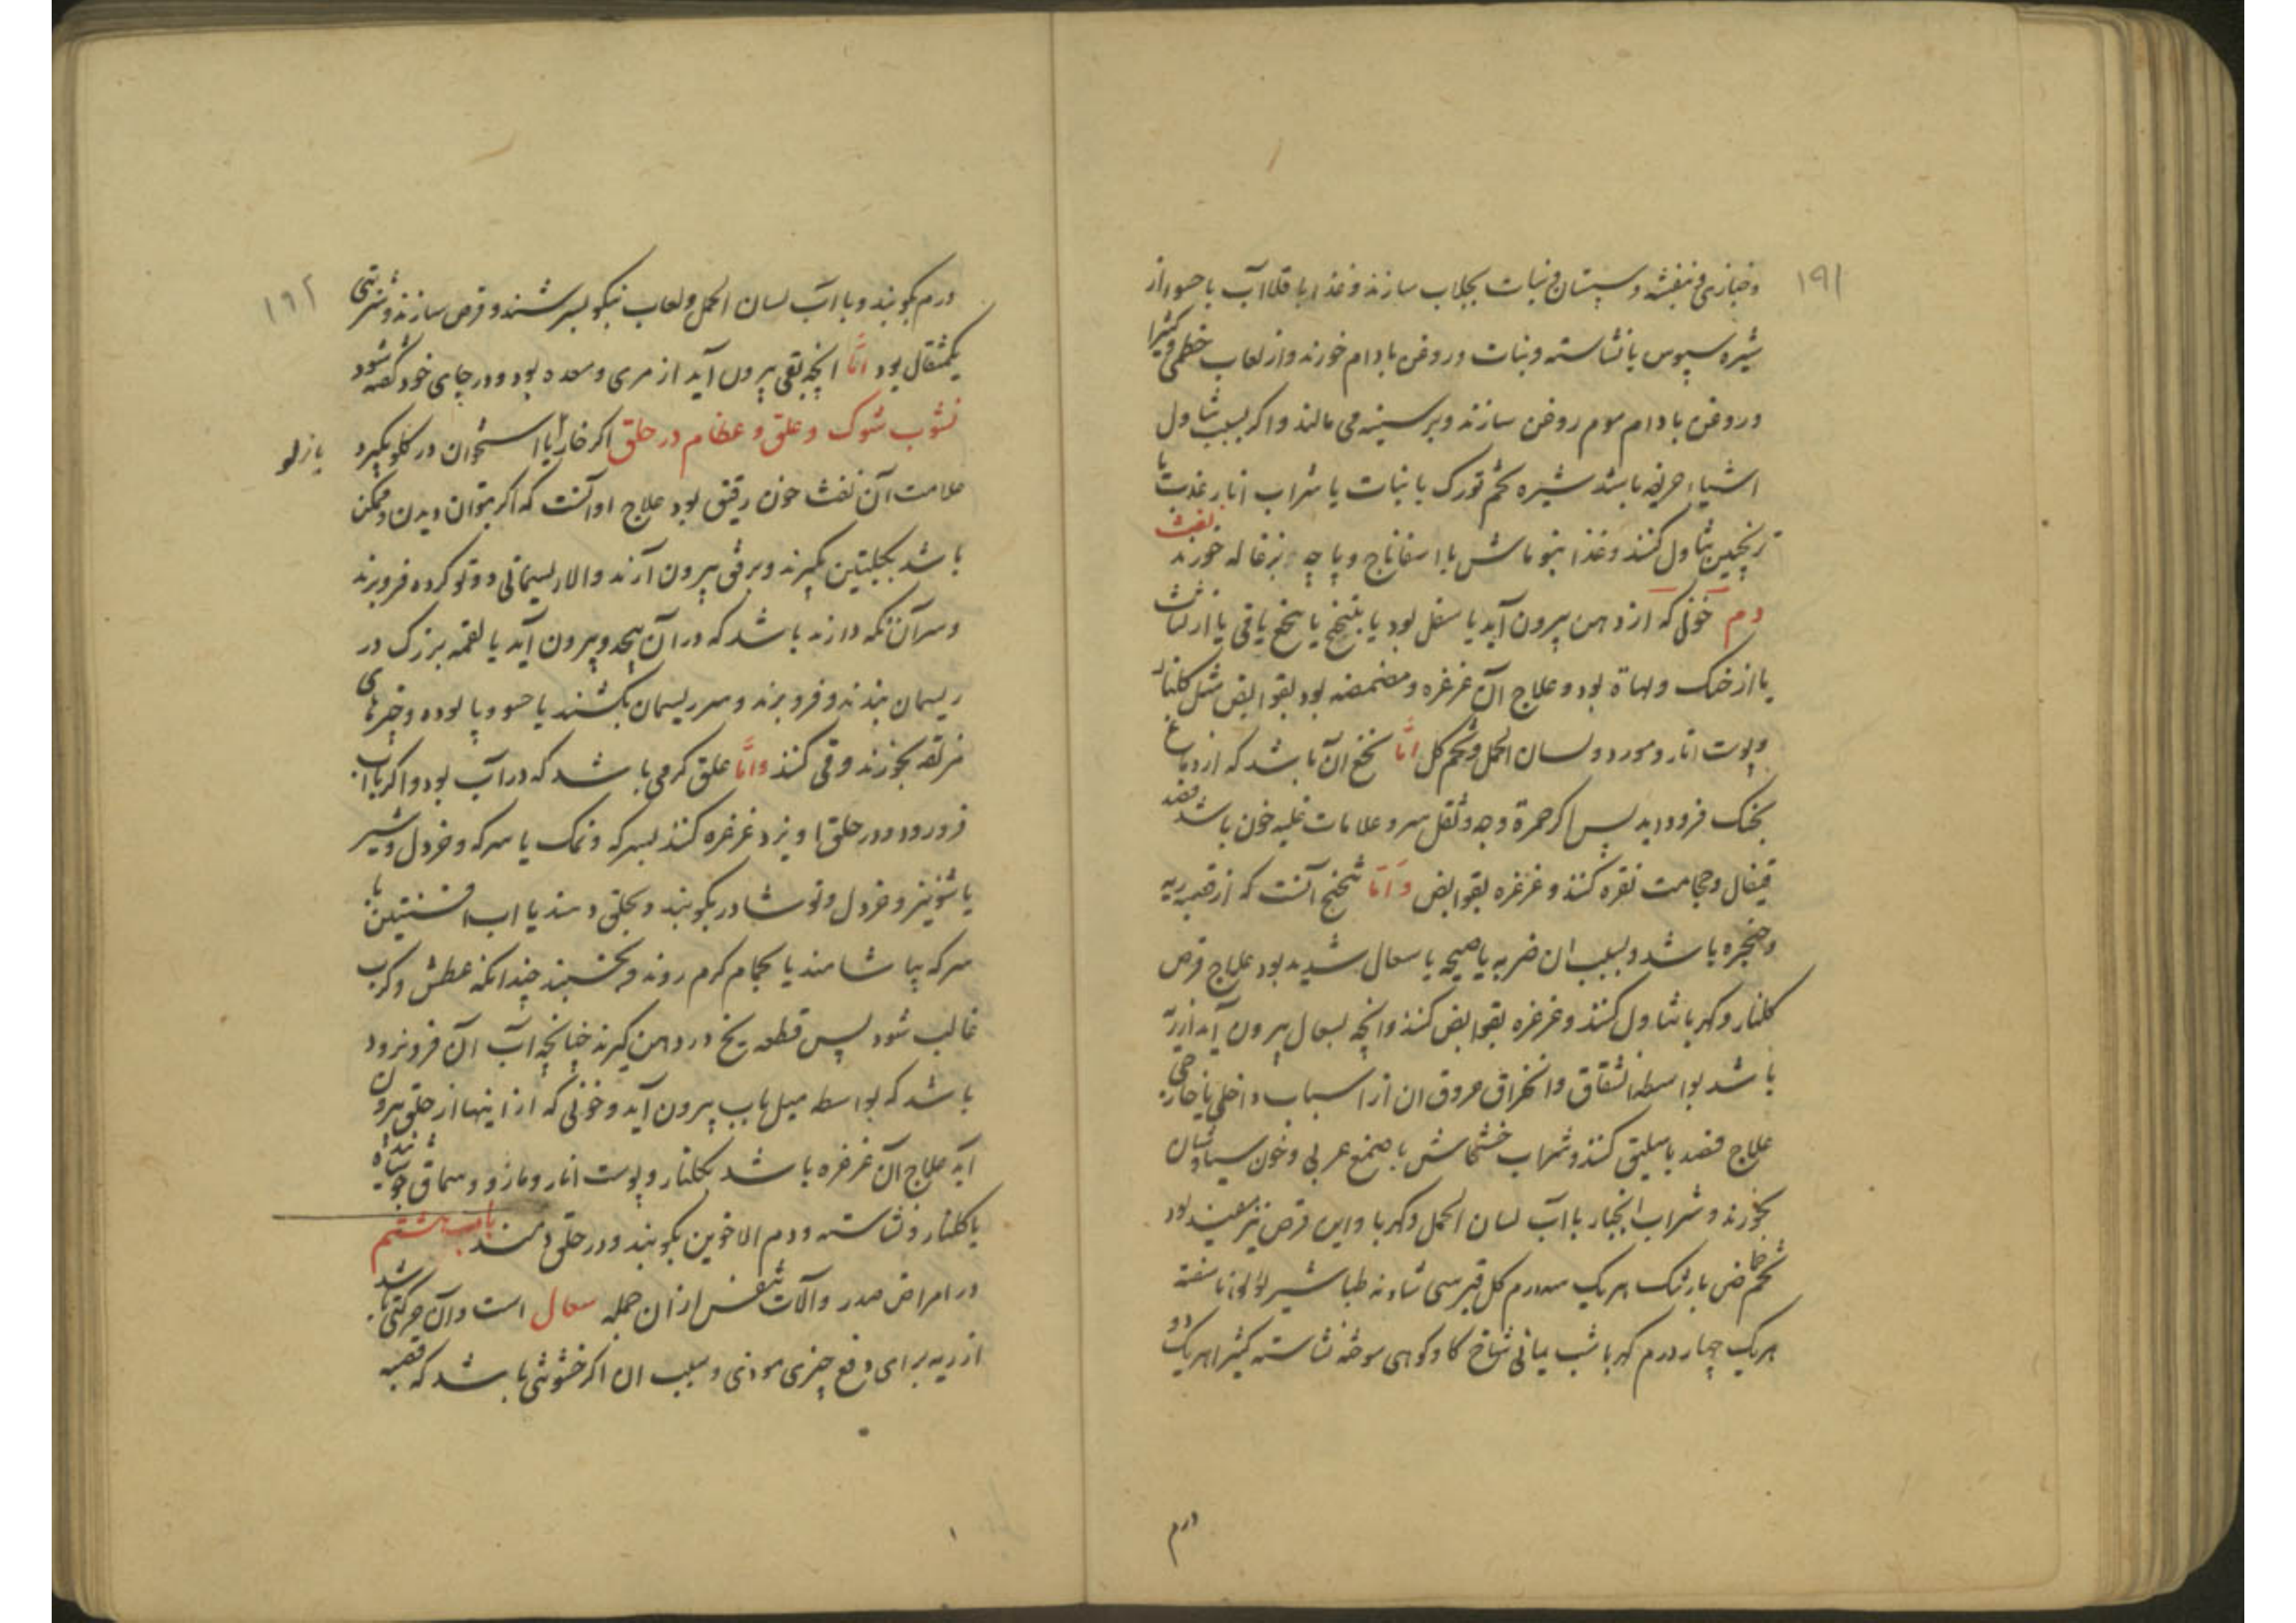 ۱۹۱
و خبازی و بنفشه و سپستان و نبات بجلاب سازند و غذا باقلا آب یا حسو از
شیره سپوس یا نشاسته و نبات و روغن بادام خورند و از لعاب خطمی و کثیرا
و روغن بادام موم روغن سازند و بر سینه می مالند و اگر بسبب تناول
اشیاء حریفه باشد شیره تخم تورک با نبات یا شراب انار عذب با
ترنجبین تناول کنند و غذا بنو ماش با اسفاناج و پاچه بزغاله خورند نفث
دم خونی که از دهن بیرون آید یا سفل بود یا بتنخج یا بتنخع یا قی یا از لثات
یا از حنک و لهاة بود و علاج آن غرغره و مضمضه بود بقوابض مثل گلنار
و پوست انار و مورد و لسان الحمل و تخم گل امّا تنخع ان باشد که از دماغ
بحنک فرود اید پس اگر حمرة وجه و ثقل سر و علامات غلبه خون باشد فصد
قیفال و حجامت نقره کنند و غرغره بقوابض و امّا تنخنج آنست که از قصبه ریه
و حنجره باشد و بسبب ان ضربه یا صیحه یا سعال شدید بود علاج قرص
کلنار و کهربا تناول کنند و غرغره بقوابض کنند و انچه بسعال بیرون آید از ریه
باشد بواسطه انشقاق و انخراق عروق ان از اسباب داخلی یا خارجی
علاج فصد باسلیق کنند و شراب خشخاش با صمغ عربی و خون سیاوشان
بخورند و شراب انجبار با آب لسان الحمل و کهربا و این قرص نیز مفید بود
تخم حماض بارتنک هر یک سه درم کل قبرسی شادنه طباشیر لؤلؤ ناسفته
هر یک چهار درم کهربا شب یمانی شاخ کاو کوهی سوخته نشاسته کثیرا هر یک دو
درم
۱۹۲
درم بکوبند و با آب لسان الحمل و لعاب نیکو بسرشند و قرص سازند و شربتی
یکمثقال بود امّا انچه بقی بیرون آید از مری و معده بود و در جای خود گفته شود
نشوب شوک و علق و عظام در حلق اگر خار یا استخوان در کلو بگیرد
یا زلو
علامت آن نفث خون رقیق بود علاج او آنست که اگر بتوان دیدن و ممکن
باشد بکلبتین بگیرند و برفق بیرون آرند و الا ریسمانی دو تو کرده فرو برند
و سر آن نگه دارند باشد که در آن پیچد و بیرون آید یا لقمه بزرک در
ریسمان بندند و فرو برند و سر ریسمان بکشند یا حسو و پالوده و چیزهای
مزلقه بخورند و قی کنند و امّا علق کرمی باشد که در آب بود و اکر با آب
فرو رود و در حلق اویزد غرغره کنند بسرکه و نمک یا سرکه و خردل و شیر
یا شونیز و خردل و نوشادر بکوبند و بحلق دمند یا اب افسنتین با
سرکه بیاشامند یا بحمام کرم روند و بخسبند چندانکه عطش و کرب
غالب شود پس قطعه یخ در دهن کیرند چنانچه آب آن فرو نرود
باشد که بواسطه میل بآب بیرون آید و خونی که از اینها از حلق بیرون
آید علاج آن غرغره باشد بکلنار و پوست انار و مازو و سماق جوشانده
یا کلنار و نشاسته و دم الاخوین بکوبند و در حلق دمند باب هشتم
در امراض صدر و آلات تنفس از ان جمله سعال است و آن حرکتی باشد
از ریه برای دفع چیزی موذی و سبب ان اکر خشونتی باشد که قصبه